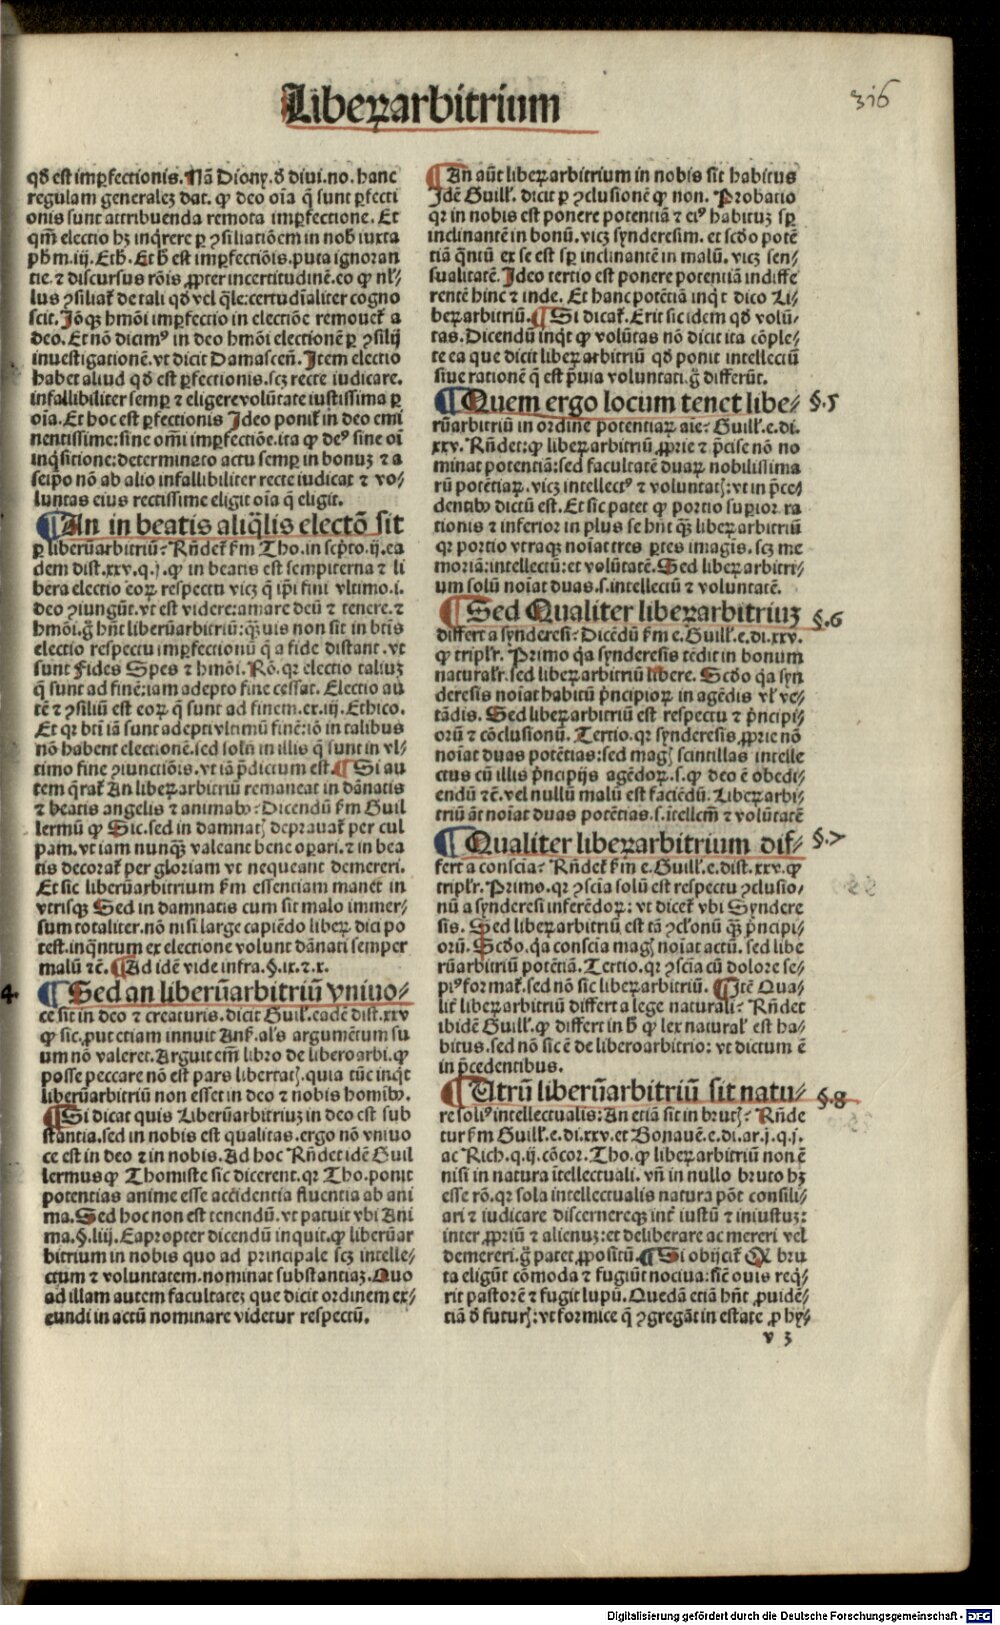 Liberarbitrium
316
qḋ est imꝑfectionis. Nã Diony. ḋ diui. no. hanc
regulam generalez dat. ꝙ deo oĩa q̃ sunt ꝑfecti
onis sunt attribuenda remota imꝑfectione. Et
qm̃ electio hꝫ inq̃rere ꝑ ꝯsiliatiõem in nob̃ iuxta
pħm. iij. Etħ. Et ħ est imꝑfectiõis. puta ignoran
tie. ⁊ discursus rõis ꝓpter incertitudinẽ. eo ꝙ nl̃⸗
lus ꝯsiliat̃ de tali qḋ vel q̃le: certudĩaliter cogno
scit. Jõqꝫ hmõi imꝑfectio in electiõe remouet̃ a
deo. Et nõ dicimꝰ in deo hmõi electionẽ ꝑ ꝯsilij
inuestigationẽ. vt dicit Damascen̄. Jtem electio
habet aliud qḋ est ꝑfectionis. scꝫ recte iudicare.
infallibiliter semꝑ ⁊ eligere volũtate iustissima ꝑ
oĩa. Et hoc est ꝑfectionis Jdeo ponit̃ in deo emi
nentissime: sine omi imꝑfectiõe. ita ꝙ deꝰ sine oĩ
inq̃sitione: determinato actu semꝑ in bonuꝫ ⁊ a
seipo nõ ab alio infallibiliter recte iudicat ⁊ vo⸗
luntas eius rectissime eligit oĩa q̃ eligit.
¶An in beatis aliq̃lis electõ sit
ꝑ liberũarbitriũ? Rñdet̃ ẜm Tho. in scp̃to. ij. ea
dem dist. xxv. q. j. ꝙ in beatis est sempiterna ⁊ li
bera electio eoꝝ respectu vicꝫ q̃ ip̃i fini vltimo. i.
deo ꝯiungũt. vt est videre: amare deũ ⁊ tenere. ⁊
hmõi. g̃ hñt liberũarbitriũ: q̃uis non sit in btĩs
electio respectu imꝑfectionũ q̃ a fide distant. vt
sunt Fides Spes ⁊ hmõi. Rõ. qꝛ electio taliuꝫ
q̃ sunt ad finẽ: iam adepto fine cessat. Electio au
tẽ ⁊ ꝯsiliũ est eoꝝ q̃ sunt ad finem. ex. iij. Ethico.
Et qꝛ btĩ iã sunt adepti vltimũ finẽ: iõ in talibus
nõ habent electionẽ. sed solũ in illis q̃ sunt in vl⸗
timo fine ꝯiunctiõis. vt iã p̃dictum est. ¶Si au
tem q̃rat̃ An liberarbitrium remaneat in dãnatis
⁊ beatis angelis ⁊ animabꝰ? Dicendũ ẜm Guil
lermũ ꝙ Sic. sed in damnatꝭ deprauat̃ per cul
pam. vt iam nunqꝫ valeant bene oꝑari. ⁊ in bea
tis decorat̃ per gloriam vt nequeant demereri.
Et sic liberũarbitrium ẜm essentiam manet in
vtrisqꝫ Sed in damnatis cum sit malo immer⸗
sum totaliter. nõ nisi large capiẽdo libeꝝ dici po
test. inq̃ntum ex electione volunt dãnati semper
malũ ⁊c̃. ¶Ad idẽ vide infra. §. ix. ⁊. x.
4.
¶Sed an liberũarbitriũ vniuo⸗
ce sit in deo ⁊ creaturis. dicit Guil̃. eadẽ dist. xxv
ꝙ sic. ꝓut etiam innuit Ans̃. al̃s argumẽtum su
um nõ valeret. Arguit em̃ libro de liberoarbi. ꝙ
posse peccare nõ est pars libertatꝭ. quia tũc inq̃t
liberũarbitrium non esset in deo ⁊ nobis homĩbꝰ.
¶Si dicat quis Liberũarbitriuꝫ in deo est sub
stantia. sed in nobis est qualitas. ergo nõ vniuo
ce est in deo ⁊ in nobis. Ad hoc Rñdet idẽ Guil
lermus ꝙ Thomiste sic dicerent. qꝛ Tho. ponit
potentias anime esse accidentia fluentia ab ani
ma. Sed hoc non est tenendũ. vt patuit vbi Ani
ma. §. liij. Eapropter dicendũ inquit. ꝙ liberũar
bitrium in nobis quo ad principale scꝫ intelle⸗
ctum ⁊ voluntatem. nominat substantiaꝫ. Quo
ad illam autem facultateꝫ que dicit ordinem ex⸗
eundi in actũ nominare videtur respectũ.
¶An aũt libeꝝarbitrium in nobis sit habitus
Jdẽ Guill̃. dicit ꝑ ꝯclusionẽ ꝙ non. Probatio
qꝛ in nobis est ponere potentiã ⁊ eiꝰ habituꝫ sꝑ
inclinantẽ in bonũ. vicꝫ synderesim. et scḋo potẽ
tiã q̃ntũ ex se est sꝑ inclinantẽ in malũ. vicꝫ sen⸗
sualitatẽ. Jdeo tertio est ponere potentiã indiffe
rentẽ hinc ⁊ inde. Et hanc potẽtiã inq̃t dico Li⸗
berarbitriũ. ¶Si dicat̃. Erit sic idem qḋ volũ⸗
tas. Dicendũ inq̃t ꝙ volũtas nõ dicit ita cõple⸗
te ea que dicit liberarbitriũ qḋ ponit intellectũ
siue rationẽ q̃ est p̃uia voluntati. g̃ differũt.
¶Quem ergo locum tenet libe⸗ §.5
rũarbitriũ in ordine potentiaꝝ aie? Guill̃. e. di.
xxv. Rñdet: ꝙ liberarbitriũ ꝓprie ⁊ p̃cise nõ no
minat potentiã: sed facultatẽ duaꝝ nobilissima
rũ potẽtiaꝝ. vicꝫ intellectꝰ ⁊ voluntatꝭ: vt in p̃ce⸗
dentibꝰ dictũ est. Et sic patet ꝙ portio suꝑior ra
tionis ⁊ inferior in plus se hñt q̃ꝫ liberarbitriũ
qꝛ portio vtraqꝫ noĩat tres ꝑtes imagis. scꝫ me
moriã: intellectũ: et volũtatẽ. Sed liberarbitri⸗
um solũ noĩat duas. s. intellectũ ⁊ voluntatẽ.
¶Sed Qualiter liberarbitriuꝫ §.6
differt a synderesi? Dicẽdũ ẜm e. Guill̃. e. di. xxv.
ꝙ triplr̃. Primo q̃a synderesis tẽdit in bonum
naturalr̃. sed liberarbitriũ libere. Scḋo q̃a syn
deresis noĩat habitũ p̃ncipioꝝ in agẽdis vl̃ ve⸗
tãdis. Sed liberarbitriũ est respectu ⁊ p̃ncipi⸗
orũ ⁊ cõclusionũ. Tertio. qꝛ synderesis ꝓprie nõ
noĩat duas potẽtias: sed magꝭ scintillas intelle
ctus cũ illis p̃ncipijs agẽdoꝝ. s. ꝙ deo ẽ obedi⸗
endũ ⁊c̃. vel nullũ malũ est faciẽdũ. Liberarbi⸗
triũ aũt noĩat duas potẽtias. s. ĩtellcm̃ ⁊ volũtatẽ
¶Qualiter liberarbitrium dif⸗ §.7
fert a conscia? Rñdet̃ ẜm e. Guill̃. e. dist. xxv. ꝙ
triplr̃. Primo. qꝛ ꝯscia solũ est respectu ꝯclusio⸗
nũ a synderesi inferẽdoꝝ: vt dicet̃ vbi Syndere
sis. Sed liberarbitriũ est tã ꝯclonũ q̃ꝫ p̃ncipi⸗
orũ. Scḋo. q̃a conscia magꝭ noĩat actũ. sed libe
rũarbitriũ potẽtiã. Tertio. qꝛ ꝯsciẽtia cũ dolore se⸗
piꝰ format̃. sed nõ sic liberarbitriũ. ¶Jtẽ Qua⸗
lit̃ liberarbitriũ differt a lege naturali? Rñdet
ibidẽ Guill̃. ꝙ differt in ħ ꝙ lex natural̃ est ha⸗
bitus. sed nõ sic ẽ de liberoarbitrio: vt dictum ẽ
in p̃cedentibus.
¶Utrũ liberũarbitriũ sit natu⸗ §.8
re soliꝰ intellectualis: An etiã sit in brutꝭ? Rñde
tur ẜm Guill̃. e. di. xxv. et Bonauẽ. e. di. ar. j. q. j.
ac Rich. q. ij. cõcor. Tho. ꝙ liberarbitriũ non ẽ
nisi in natura ĩtellectuali. vñ in nullo bruto hꝫ
esse rõ. qꝛ sola intellectualis natura põt consili⸗
ari ⁊ iudicare discernereqꝫ int̃ iustũ ⁊ iniustuꝫ:
inter ꝓpriũ ⁊ alienuꝫ: et deliberare ac mereri vel
demereri. g̃ patet ꝓpositũ. ¶Si obijcit̃ Ꝙ bru
ta eligũt cõmoda ⁊ fugiũt nociua: sic̃ ouis req̃⸗
rit pastorẽ ⁊ fugit lupũ. Quedã etiã hñt ꝓuidẽ⸗
tiã ḋ futurꝭ: vt formice q̃ ꝯgregãt in estate ꝓ hy⸗
v 3
Digitalisierung gefördert durch die Deutsche Forschungsgemeinschaft - DFG